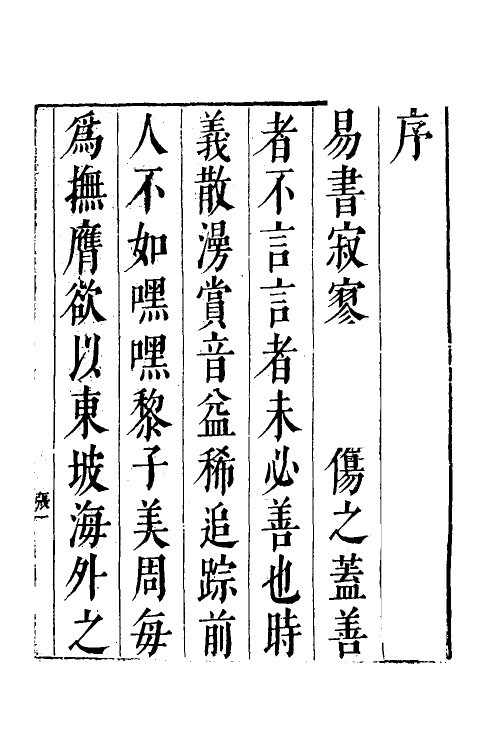 序
易書寂寥　　傷之蓋善
者不言言者未必善也時
義散漫賞音益稀追踪前
人不如嘿嘿黎子美周每
為撫膺欲以東坡海外之
張一